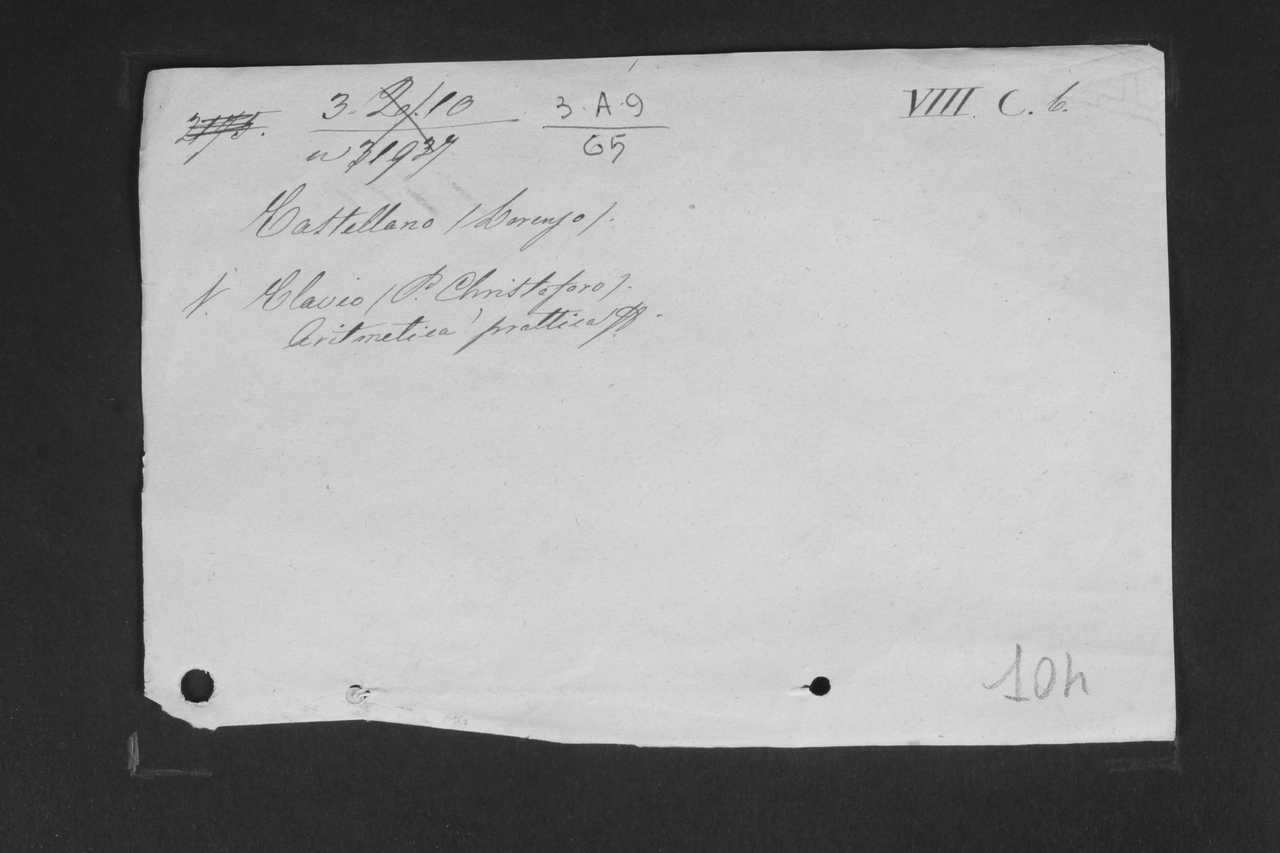 3. A. 9
65
VIII. C. 6.
Castellano (Lorenzo).
V. Clavio (P. Christoforo).
Aritmetica prattica
104